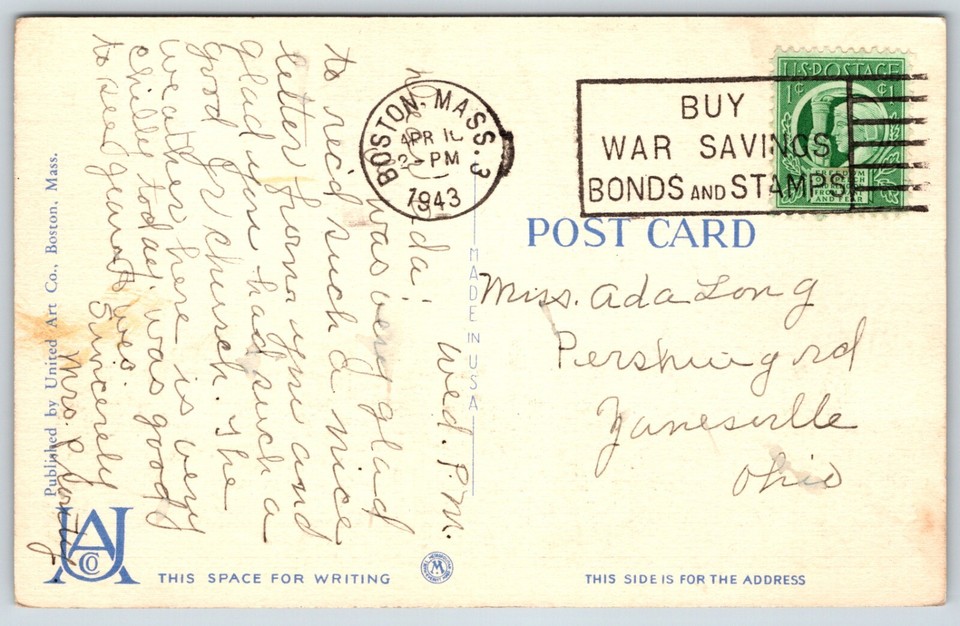 BOSTON, MASS. 3
APR
2 - PM
1943
BUY
WAR SAVINGS
BONDS AND STAMPS
U.S. POSTAGE
1¢ ¢1
FREEDOM
OF SPEECH
FROM WANT
AND FEAR
POST CARD
Miss. Ada Long
Pershing rd
Zanesville
Ohio
Wed. P.M.
was very glad
to rec'd such a nice
letter from you and
glad you had such a
good Jr church. The
weather here is very
chilly today. was good
to see you
Sincerely
Mrs. P
MADE IN U.S.A.
Published by United Art Co., Boston, Mass.
UA
CO
M
THIS SPACE FOR WRITING
THIS SIDE IS FOR THE ADDRESS